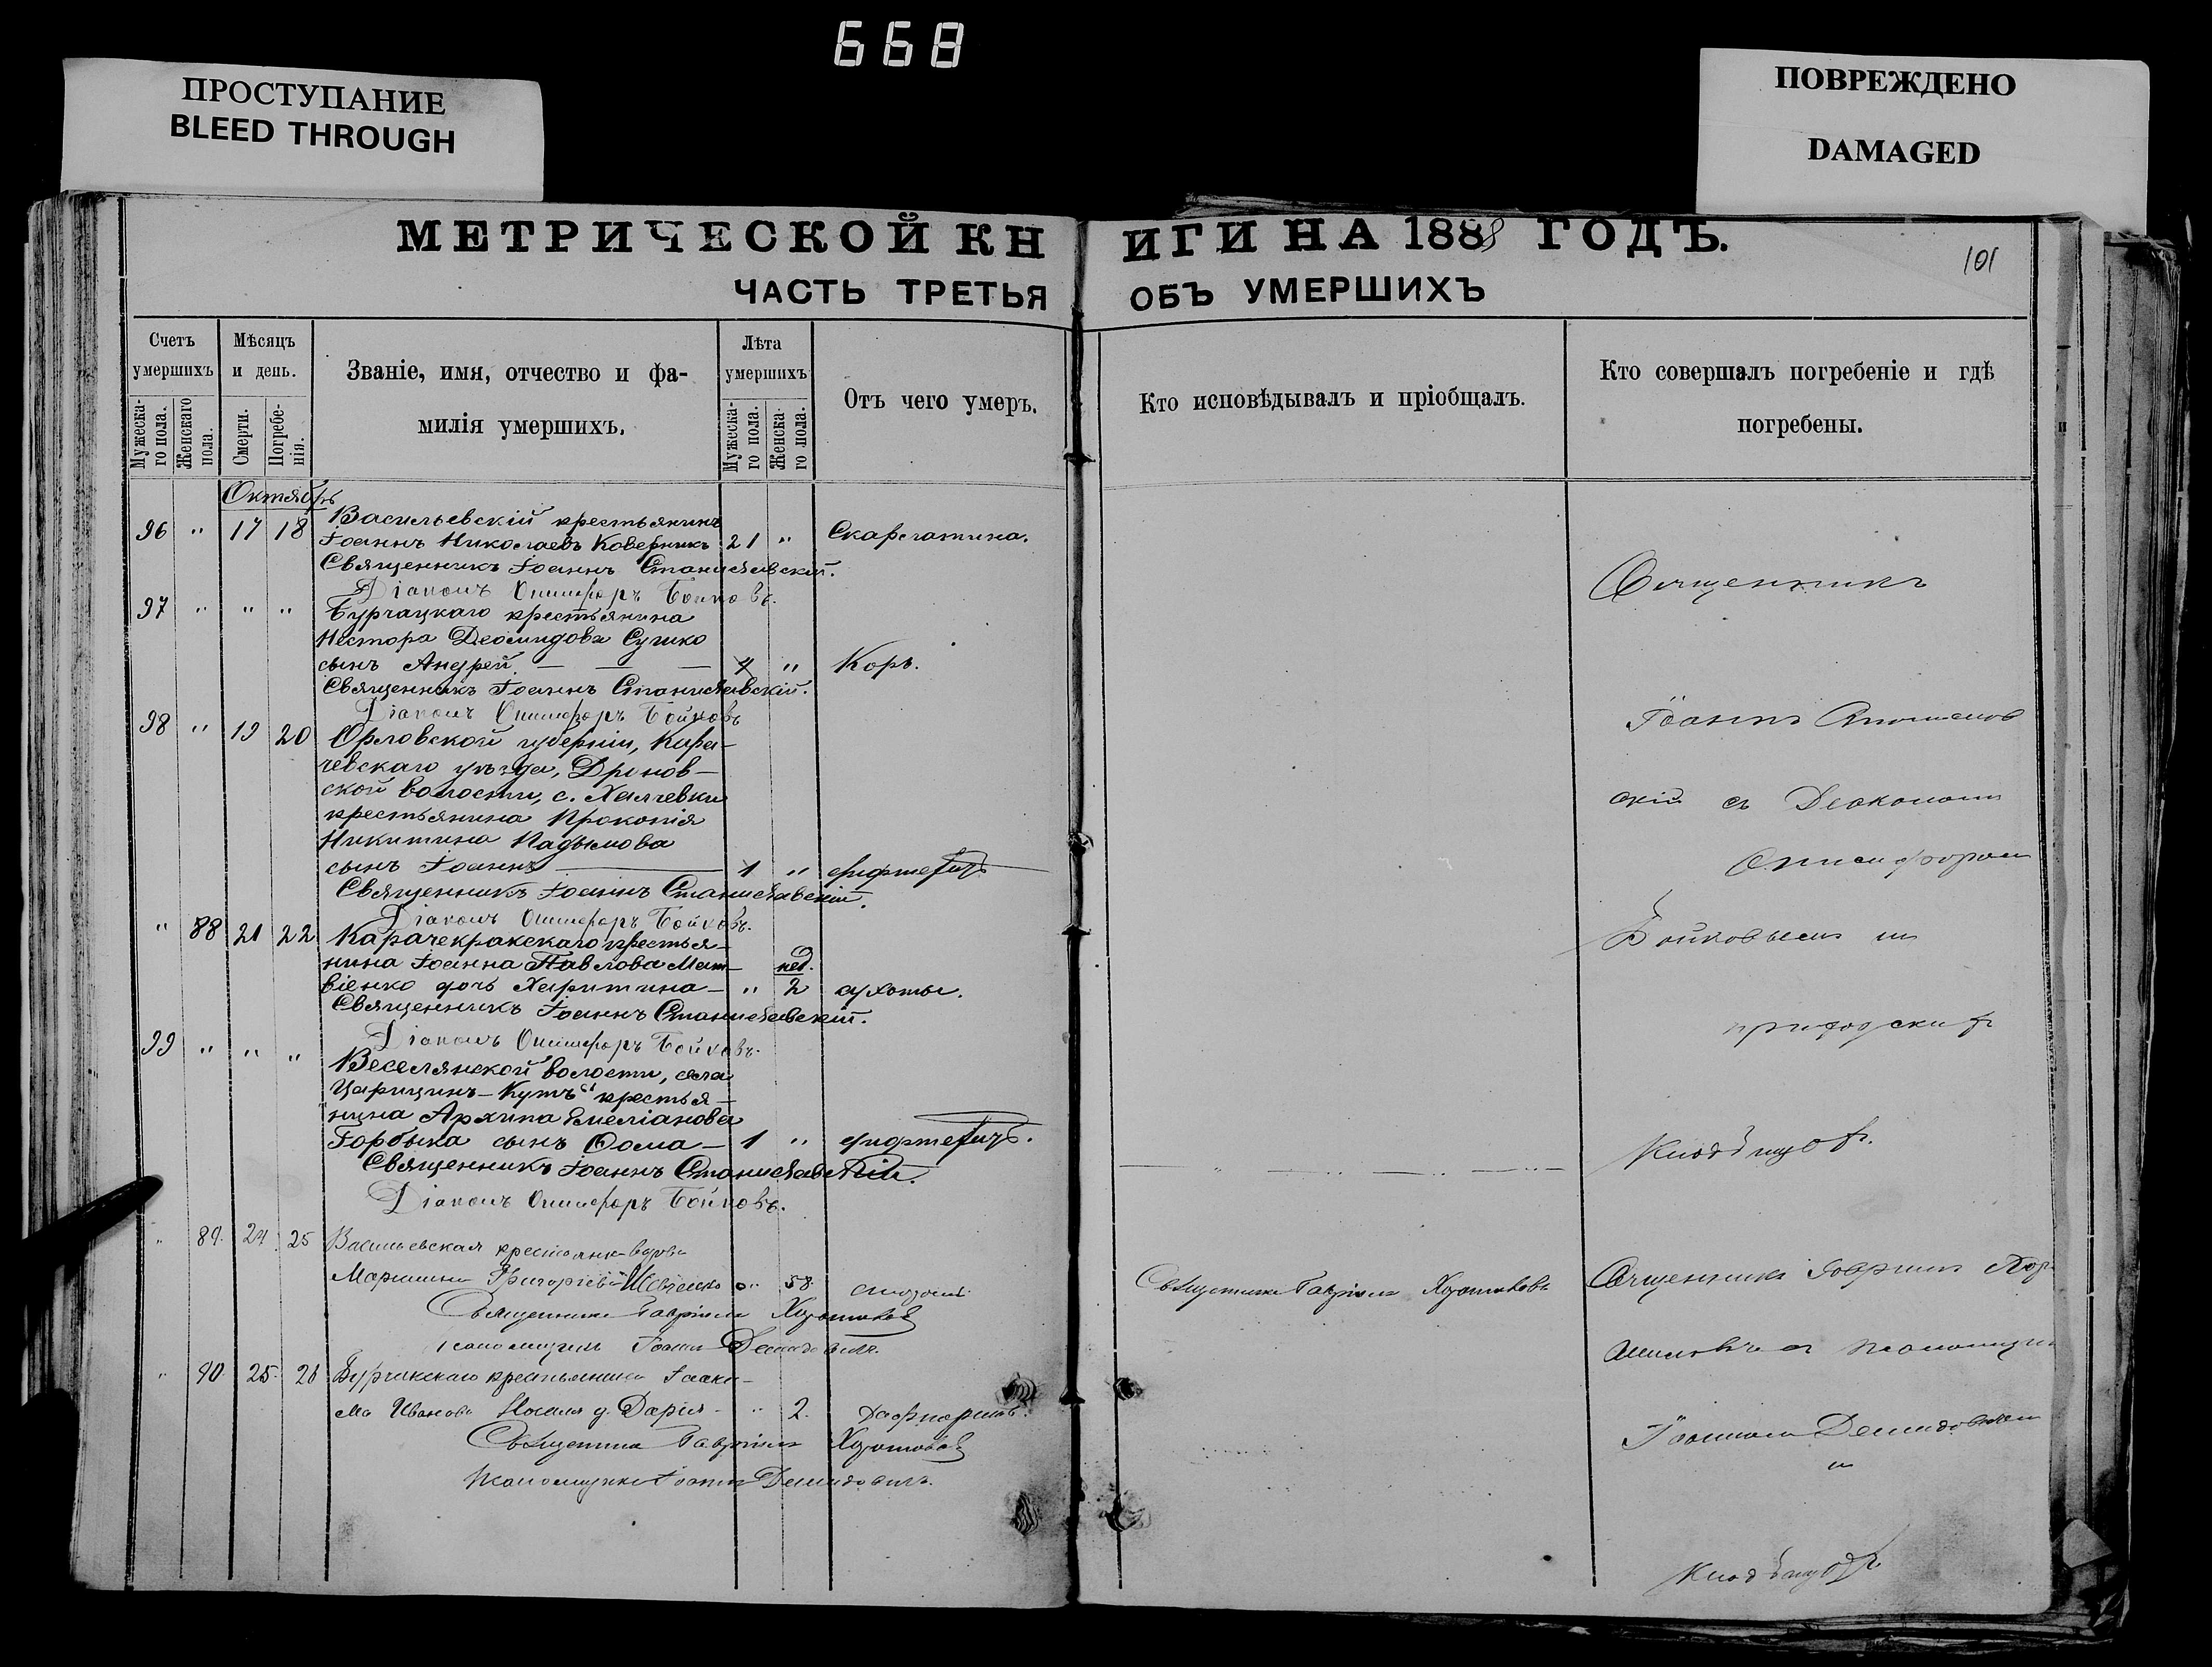 668
ПРОСТУПАНИЕ
BLEED THROUGH
ПОВРЕЖДЕНО
DAMAGED
МЕТРИЧЕСКОЙ КНИГИ НА 1888 ГОДЪ.
101
ЧАСТЬ ТРЕТЬЯ ОБЪ УМЕРШИХЪ
Счетъ умершихъ
Мужеска-го пола.
Женскаго пола.
Мѣсяцъ и день.
Смерти.
Погребе-нія.
Званіе, имя, отчество и фа-
милія умершихъ.
Лѣта умершихъ
Мужеска-го пола.
Женска-го пола.
Отъ чего умеръ.
Кто исповѣдывалъ и пріобщалъ.
Кто совершалъ погребеніе и гдѣ
погребены.
Октябрь
96 " 17 18 Васильевскій крестьянинъ
Іоаннъ Николаевъ Коверникъ 21 " Скарлатина.
Священникъ Іоаннъ Станиславскій.
Діаконъ Онисифоръ Бойковъ.
97 " " " Бурчацкаго крестьянина
Нестора Деомидова Сушко
сынъ Андрей — — — 4 " Корь.
Священникъ Іоаннъ Станиславскій.
Діаконъ Онисифоръ Бойковъ
98 " 19 20 Орловской губерніи, Кара-
чевскаго уѣзда, Дронов-
ской волости, с. Халчевки
крестьянина Прокопія
Никитина Надымова
сынъ Іоаннъ — 1 " дифтеритъ
Священникъ Іоаннъ Станиславскій.
Діаконъ Онисифоръ Бойковъ.
" 88 21 22 Карачекракскаго крестья-
нина Іоанна Павлова Мат-
віенко дочь Харитина — " нед. 2 сухоты.
Священникъ Іоаннъ Станиславскій.
Діаконъ Онисифоръ Бойковъ.
99 " " " Веселянской волости, села
"Царицинъ-Кутъ" крестья-
нина Архипа Емеліанова
Горбыка сынъ Ѳома — 1 " дифтеритъ.
Священникъ Іоаннъ Станиславскій.
Діаконъ Онисифоръ Бойковъ.
" 89. 24 25 Васильевская крестьянка-вдова
Григоріева Шевченко " 58.
Священникъ Гавріилъ
Іоаннъ Демидовичъ.
" 90. 25. 26 Бурчакскаго крестьянина Іоаки-
ма Иванова д. Дарія " 2. Дифтеритъ.
Священникъ Гавріилъ
Псаломщикъ Іоаннъ Демидовичъ.
Священникъ
Іоаннъ Станислав
скій съ Діакономъ
Онисифоромъ
Бойковымъ на
приходскомъ
кладбищѣ.
Священникъ Гавріилъ
Священникъ Гавріилъ
псаломщик
Іоанномъ Демидовичем
на
кладбищѣ